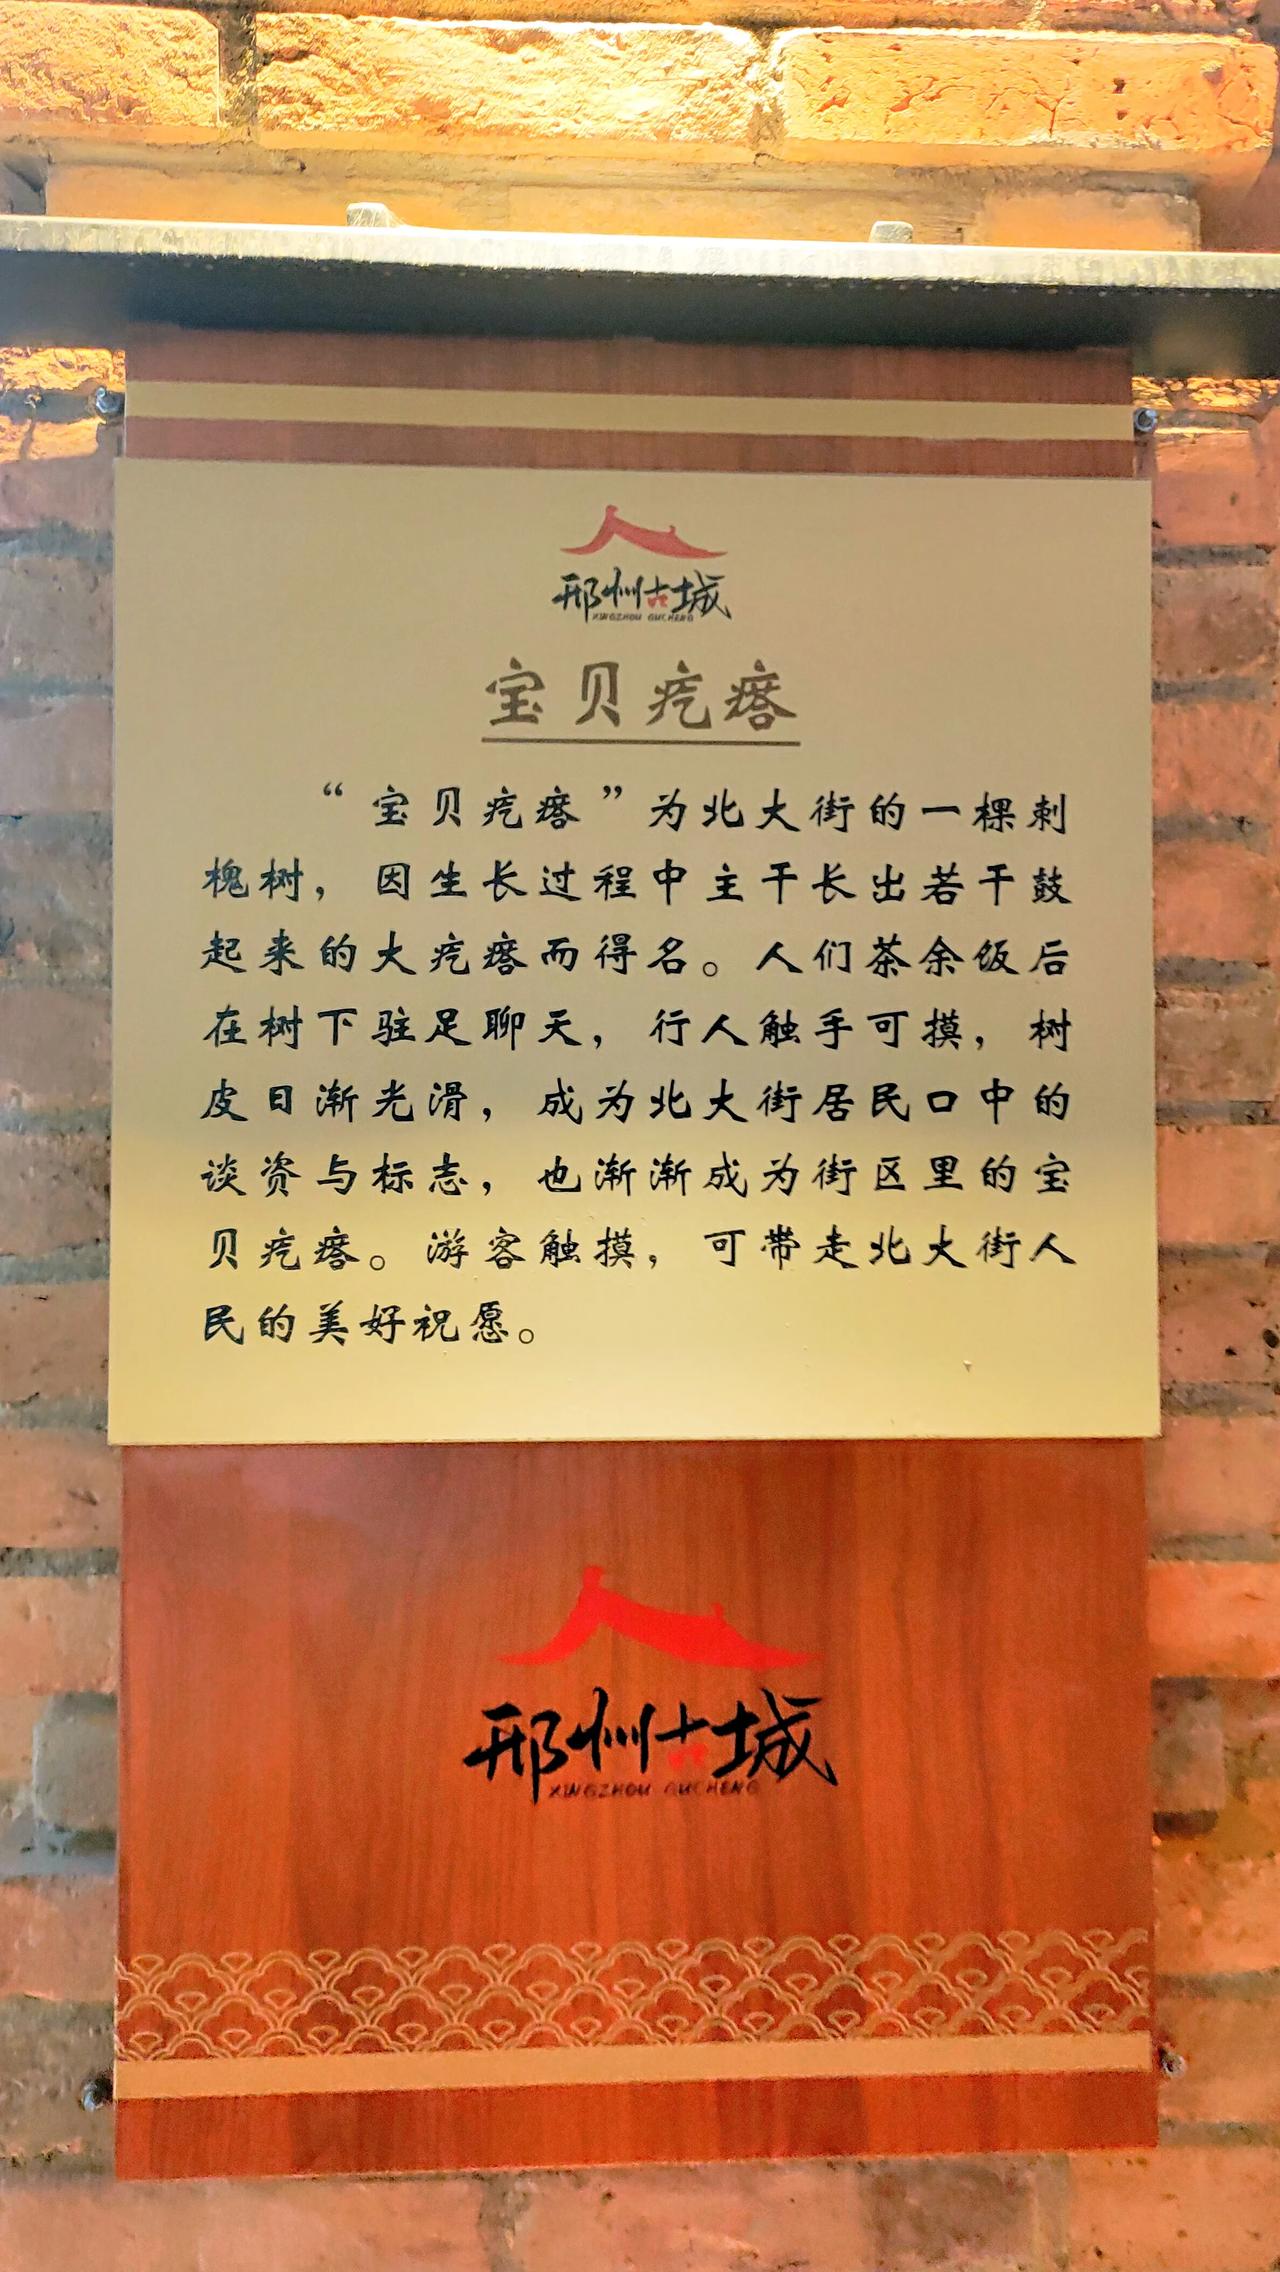 邢州古城
XINGZHOU GUCHENG
宝贝疙瘩
“宝贝疙瘩”为北大街的一棵刺
槐树，因生长过程中主干长出若干鼓
起来的大疙瘩而得名。人们茶余饭后
在树下驻足聊天，行人触手可摸，树
皮日渐光滑，成为北大街居民口中的
谈资与标志，也渐渐成为街区里的宝
贝疙瘩。游客触摸，可带走北大街人
民的美好祝愿。
邢州古城
XINGZHOU GUCHENG